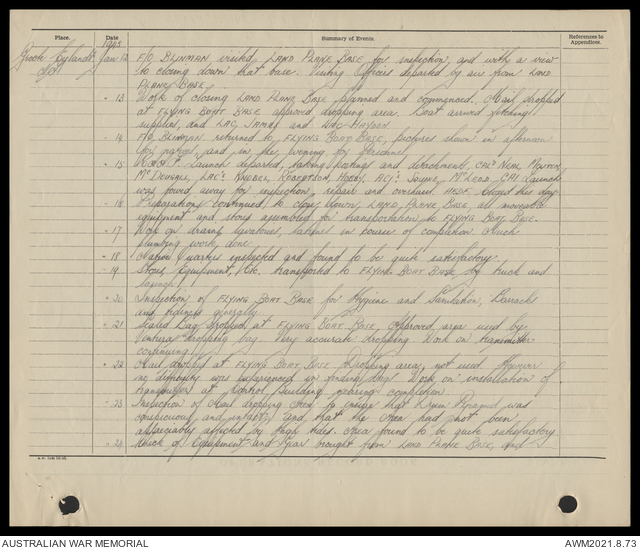 Place. Date Summary of Events. References to Appendices.
1945
Groote Eylandt Jan 12 F/O BLINMAN visited LAND PLANE BASE for inspection, and with a view
to closing down that base. Visiting Officers departed by air from LAND
PLANE BASE.
" 13 Work of closing LAND PLANE BASE planned and commenced. Mail dropped
at FLYING BOAT BASE approved dropping area. Boat arrived
supplies, and LAC. JAMES and HAYDON
" 14 F/O. BLINMAN returned to FLYING BOAT BASE, pictures shown in afternoon
for natives, and in the evening for Personnel.
" 15 Launch departed, taking and detachment, CPL
McDOUGALL, LAC's KNOBEL, ROBERTSON, HOBBY, AC1's JOYNE, McLEOD, Launch
was for inspection, repair and overhaul. HFDF. closed this day.
" 16 Preparations continued to close down LAND PLANE BASE all moveable
equipment and stores assembled for transportation to FLYING BOAT BASE.
" 17 Work on drains, in course of completion. Much
plumbing work done.
" 18 Native quarters inspected and found to be quite satisfactory.
" 19 Stores, Equipment, Etc. transported to FLYING BOAT BASE by truck and
launch
" 20 Inspection of FLYING BOAT BASE for Hygiene and Sanitation, Barracks
and tidiness generally
" 21 Bag dropped at FLYING BOAT BASE, Approved area used by
Ventura dropping bag. Very accurate dropping. Work on Transmitter
continuing.
" 22 Mail dropped at FLYING BOAT BASE Dropping area, not used However
no difficulty was experienced in finding bag. Work on installation of
transmitter at Control Building nearing completion.
" 23 Inspection of Mail dropping Area to ensure that Drum Pyramid was
conspicuous and intact, and that the Area had not been
appreciably affected by high tides. Area found to be quite satisfactory
" 24 Check of Equipment and Gear brought from LAND PLANE BASE, and
AUSTRALIAN WAR MEMORIAL AWM2021.8.73